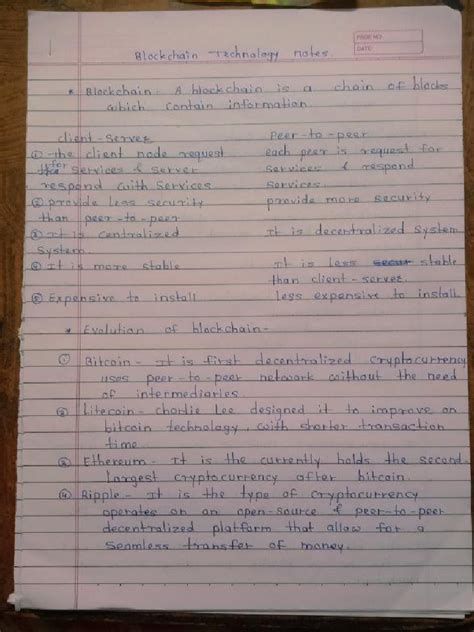 PAGE NO.
DATE
Blockchain Technology notes.
* Blockchain - A blockchain is a chain of blocks
which contain information.
client-server peer-to-peer
① the client node request each peer is request for
for services & server services & respond
respond with services services.
② provide less security provide more security
than peer-to-peer
③ It is centralized It is decentralized system
system.
④ It is more stable It is less stable
than client-server.
⑤ Expensive to install less expensive to install
* Evolution of blockchain-
① Bitcoin - It is first decentralized cryptocurrency
uses peer-to-peer network without the need
of intermediaries.
② Litecoin - charlie Lee designed it to improve on
bitcoin technology, with shorter transaction
time.
③ Ethereum - It is the currently holds the second
largest cryptocurrency after bitcoin.
④ Ripple - It is the type of cryptocurrency
operates on an open-source & peer-to-peer
decentralized platform that allow for a
seamless transfer of money.